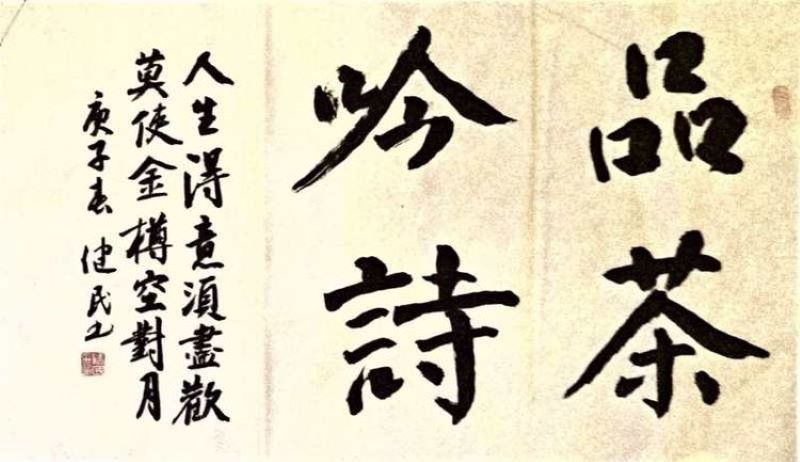 品茶
吟詩
人生得意須盡歡
莫使金樽空對月
庚子春 健民书